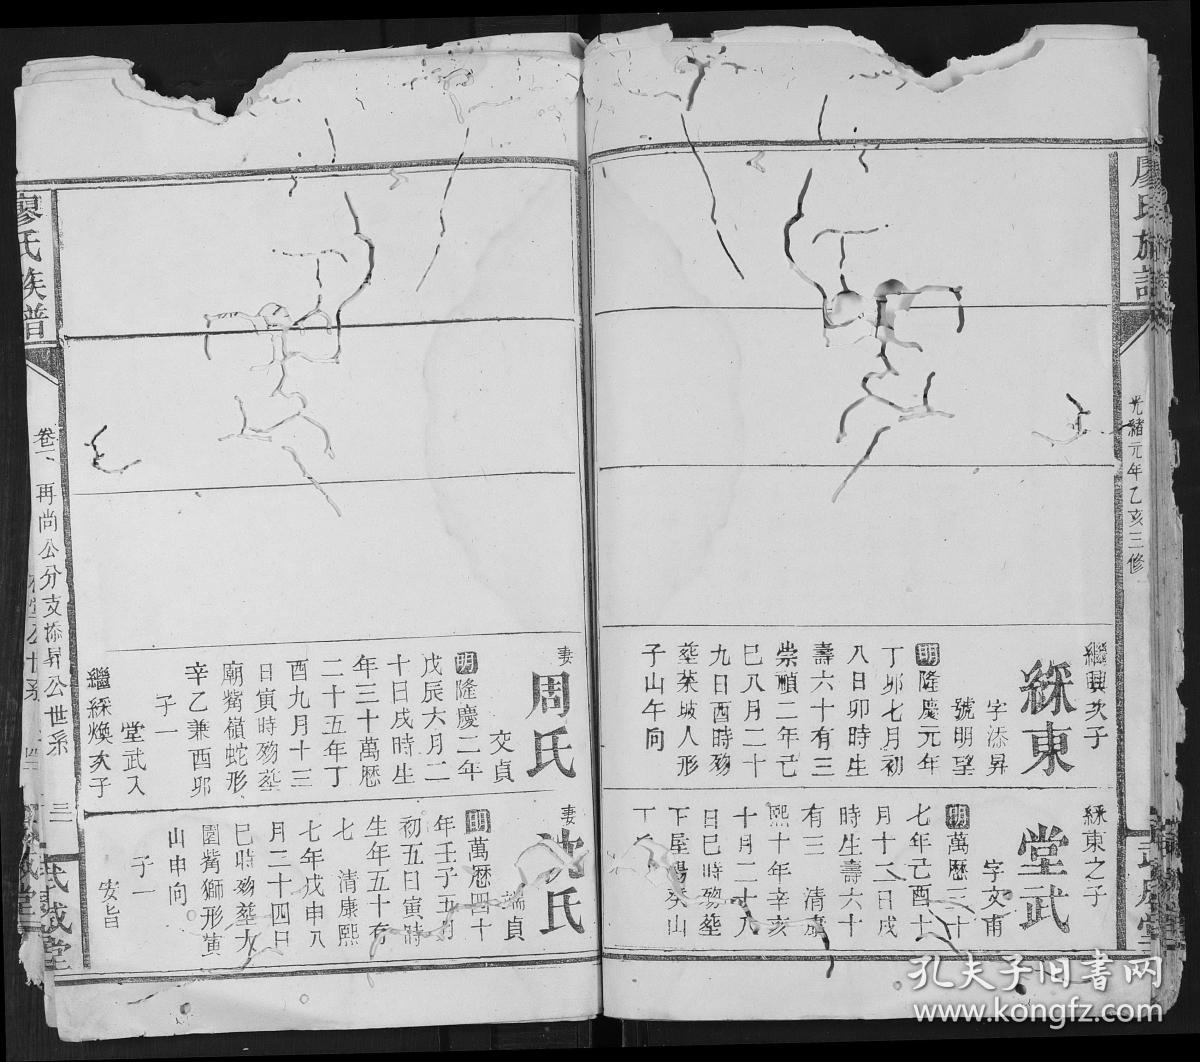 廖氏族譜
光緒元年乙亥三修
繼興次子
綵東
字添昇
號明望
明隆慶元年
丁卯七月初
八日卯時生
壽六十有三
崇禎二年己
巳八月二十
九日酉時歿
塟茶坡人形
子山午向
綵東之子
堂武
字文甫
明萬歷三十
七年己酉十
月十二日戌
時生壽六十
有三 清康
熙十年辛亥
十月二十八
日巳時歿塟
下屋場癸山
丁
妻
周氏
交貞
明隆慶二年
戊辰六月二
十日戌時生
年三十萬歷
二十五年丁
酉九月十三
日寅時歿塟
廟觜嶺蛇形
辛乙兼酉卯
子一
堂武入
繼綵煥次子
妻
沈氏
端貞
明萬歷四十
年壬子五月
初五日寅時
生年五十有
七 清康熙
七年戊申八
月二十四日
巳時歿塟大
園觜獅形寅
山申向
子一
安旨
廖氏族譜
卷一、再尚公分支添昇公世系
三
武威堂
孔夫子旧书网
www.kongfz.com